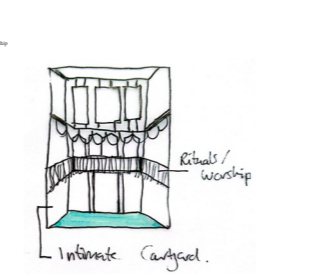 Rituals/
Worship
Intimate Courtyard.